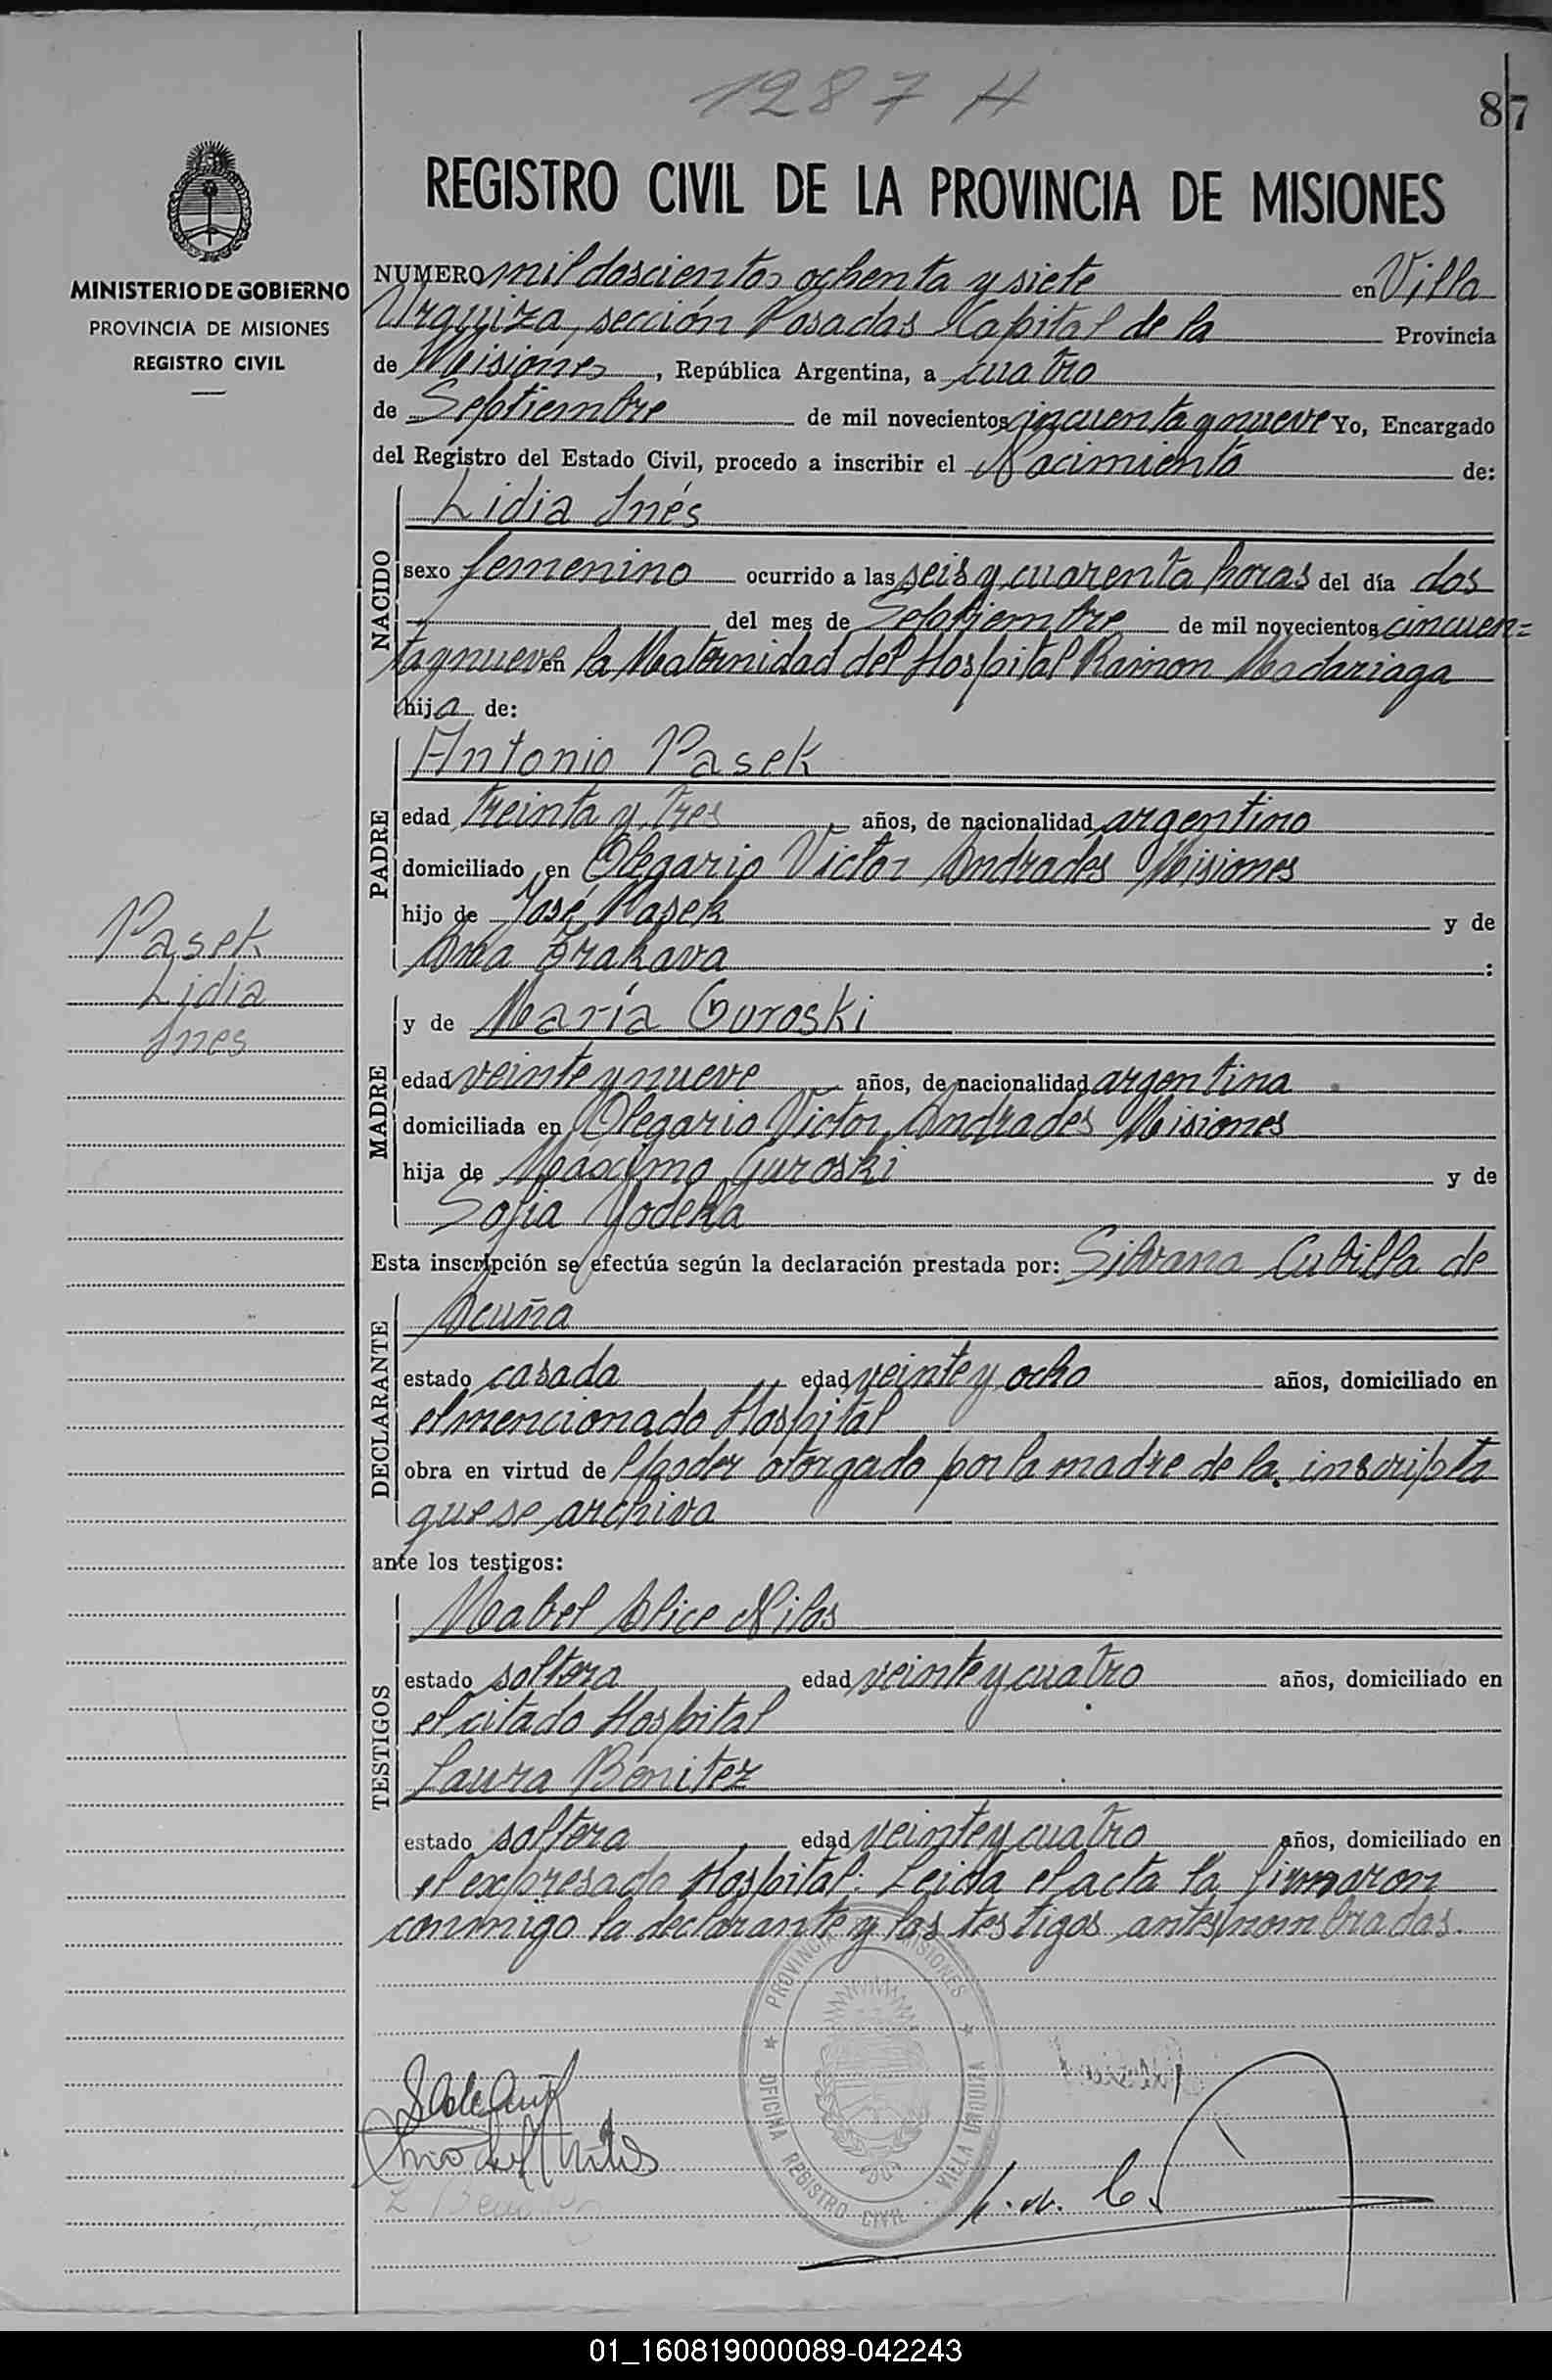 1287 H
87
REGISTRO CIVIL DE LA PROVINCIA DE MISIONES
MINISTERIO DE GOBIERNO
PROVINCIA DE MISIONES
REGISTRO CIVIL
NUMERO mil doscientos ochenta y siete en Villa
Urquiza, sección Posadas Capital de la Provincia
de Misiones, República Argentina, a cuatro
de Septiembre de mil novecientos cincuenta y nueve Yo, Encargado
del Registro del Estado Civil, procedo a inscribir el Nacimiento de:
NACIDO
Lidia Inés
sexo femenino ocurrido a las seis y cuarenta horas del día dos
del mes de Septiembre de mil novecientos cincuen=
ta y nueve en la Maternidad del Hospital Ramon Madariaga
hija de:
PADRE
Antonio Pasek
edad treinta y tres años, de nacionalidad argentino
domiciliado en Olegario Victor Andrades Misiones
hijo de José Pasek y de
Ana Zrakava:
Pasek
Lidia
Ines
MADRE
y de María Guroski
edad veinte y nueve años, de nacionalidad argentina
domiciliada en Olegario Victor Andrades Misiones
hija de Máximo Guroski y de
Sofia Yodeka
Esta inscripción se efectúa según la declaración prestada por: Silvana Cubilla de
DECLARANTE
Acuña
estado casada edad veinte y ocho años, domiciliado en
el mencionado Hospital
obra en virtud de Poder otorgado por la madre de la inscripta
que se archiva
ante los testigos:
TESTIGOS
Mabel Alice Nilos
estado soltera edad veinte y cuatro años, domiciliado en
el citado Hospital
Laura Benitez
estado soltera edad veinte y cuatro años, domiciliado en
el expresado Hospital. Leida el acta la firmaron
conmigo la declarante y las testigos antes nombradas.
PROVINCIA MISIONES
OFICINA REGISTRO CIVIL VILLA URQUIZA
01_160819000089-042243